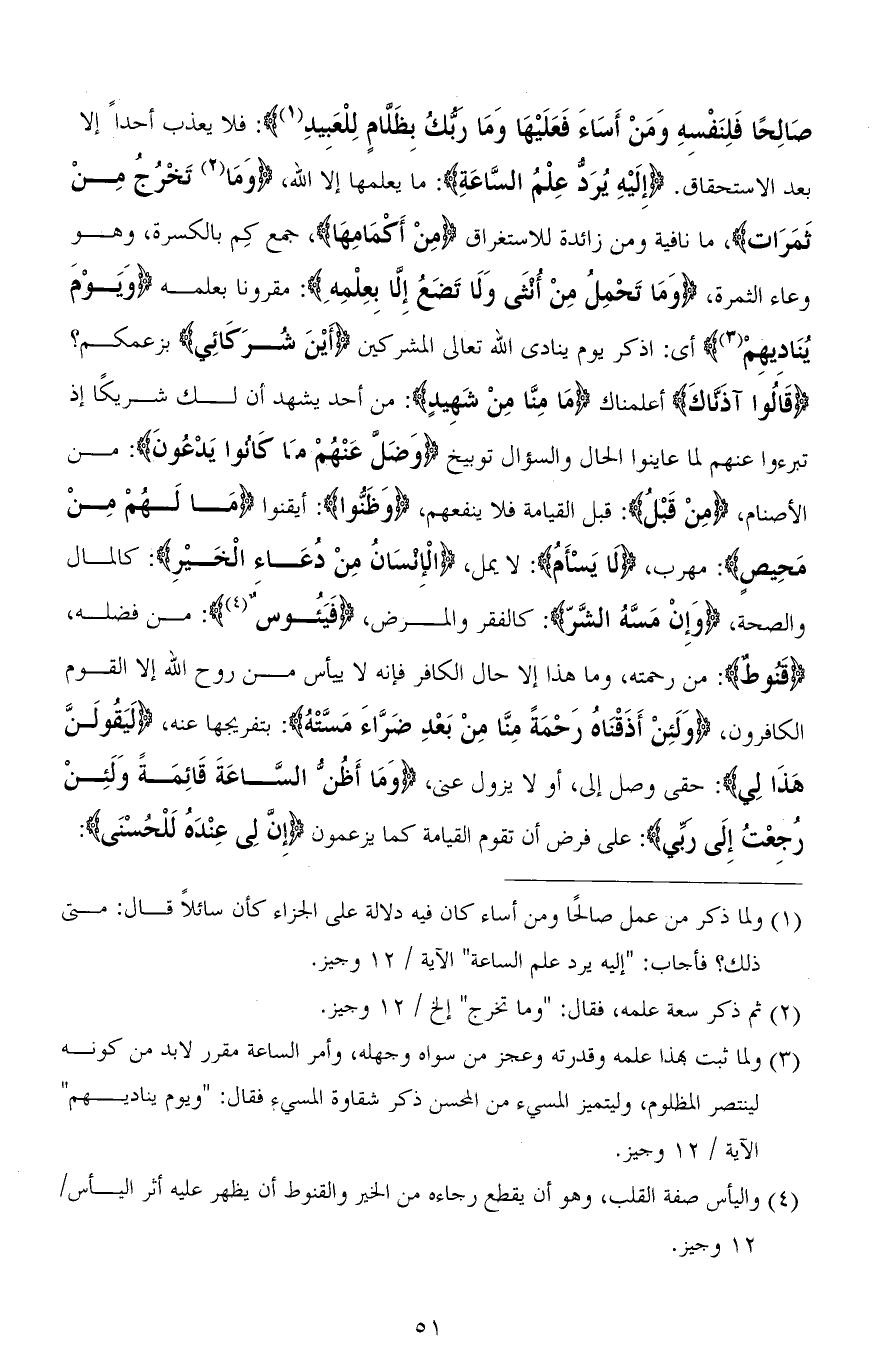 صَالِحًا فَلِنَفْسِهِ وَمَنْ أَسَاءَ فَعَلَيْهَا وَمَا رَبُّكَ بِظَلَّامٍ لِلْعَبِيدِ(١)﴾: فلا يعذب أحداً إلا
بعد الاستحقاق. ﴿إِلَيْهِ يُرَدُّ عِلْمُ السَّاعَةِ﴾: ما يعلمها إلا الله، ﴿وَمَا(٢) تَخْرُجُ مِـــنْ
ثَمَرَات﴾، ما نافية ومن زائدة للاستغراق ﴿مِنْ أَكْمَامِهَا﴾، جمع كِم بالكسرة، وهــو
وعاء الثمرة، ﴿وَمَا تَحْمِلُ مِنْ أُنْثَى وَلَا تَضَعُ إِلَّا بِعِلْمِهِ﴾: مقرونا بعلمــه ﴿وَيَــوْمَ
يُنَادِيهِمْ(٣)﴾ أى: اذكر يوم ينادى الله تعالى المشركين ﴿أَيْنَ شُــرَكَائِي﴾ بزعمكــم؟
﴿قَالُوا آذَنَّاكَ﴾ أعلمناك ﴿مَا مِنَّا مِنْ شَهِيدٍ﴾: من أحد يشهد أن لــك شــريكًا إذ
تبرءوا عنهم لما عاينوا الحال والسؤال توبيخ ﴿وَضَلَّ عَنْهُمْ مَا كَانُوا يَدْعُونَ﴾: مــن
الأصنام، ﴿مِنْ قَبْلُ﴾: قبل القيامة فلا ينفعهم، ﴿وَظَنُّوا﴾: أيقنوا ﴿مَــا لَــهُمْ مِــنْ
مَحِيصٍ﴾: مهرب، ﴿لَا يَسْأَمُ﴾: لا يمل، ﴿الْإِنْسَانُ مِنْ دُعَــاءِ الْخَــيْرِ﴾: كالمــال
والصحة، ﴿وَإِنْ مَسَّهُ الشَّرّ﴾: كالفقر والمــرض، ﴿فَيَئُــوسٌ(٤)﴾: مــن فضلــه،
﴿قَنُوطٌ﴾: من رحمته، وما هذا إلا حال الكافر فإنه لا ييأس مــن روح الله إلا القــوم
الكافرون، ﴿وَلَئِنْ أَذَقْنَاهُ رَحْمَةً مِنَّا مِنْ بَعْدِ ضَرَّاءَ مَسَّتْهُ﴾: بتفريجها عنه، ﴿لَيَقُولَــنَّ
هَذَا لِي﴾: حقى وصل إلى، أو لا يزول عنى، ﴿وَمَا أَظُنُّ السَّــاعَةَ قَائِمَــةً وَلَئِــنْ
رُجِعْتُ إِلَى رَبِّي﴾: على فرض أن تقوم القيامة كما يزعمون ﴿إِنَّ لِى عِنْدَهُ لَلْحُسْنَى﴾:
(١) ولما ذكر من عمل صالحًا ومن أساء كان فيه دلالة على الجزاء كأن سائلاً قــال: مــتى
ذلك؟ فأجاب: "إليه يرد علم الساعة" الآية / ١٢ وجيز.
(٢) ثم ذكر سعة علمه، فقال: "وما تخرج" إلخ / ١٢ وجيز.
(٣) ولما ثبت بهذا علمه وقدرته وعجز من سواه وجهله، وأمر الساعة مقرر لابد من كونــه
لينتصر المظلوم، وليتميز المسيء من المحسن ذكر شقاوة المسيء فقال: "ويوم يناديــهم"
الآية / ١٢ وجيز.
(٤) واليأس صفة القلب، وهو أن يقطع رجاءه من الخير والقنوط أن يظهر عليه أثر اليــأس/
١٢ وجيز.
٥١